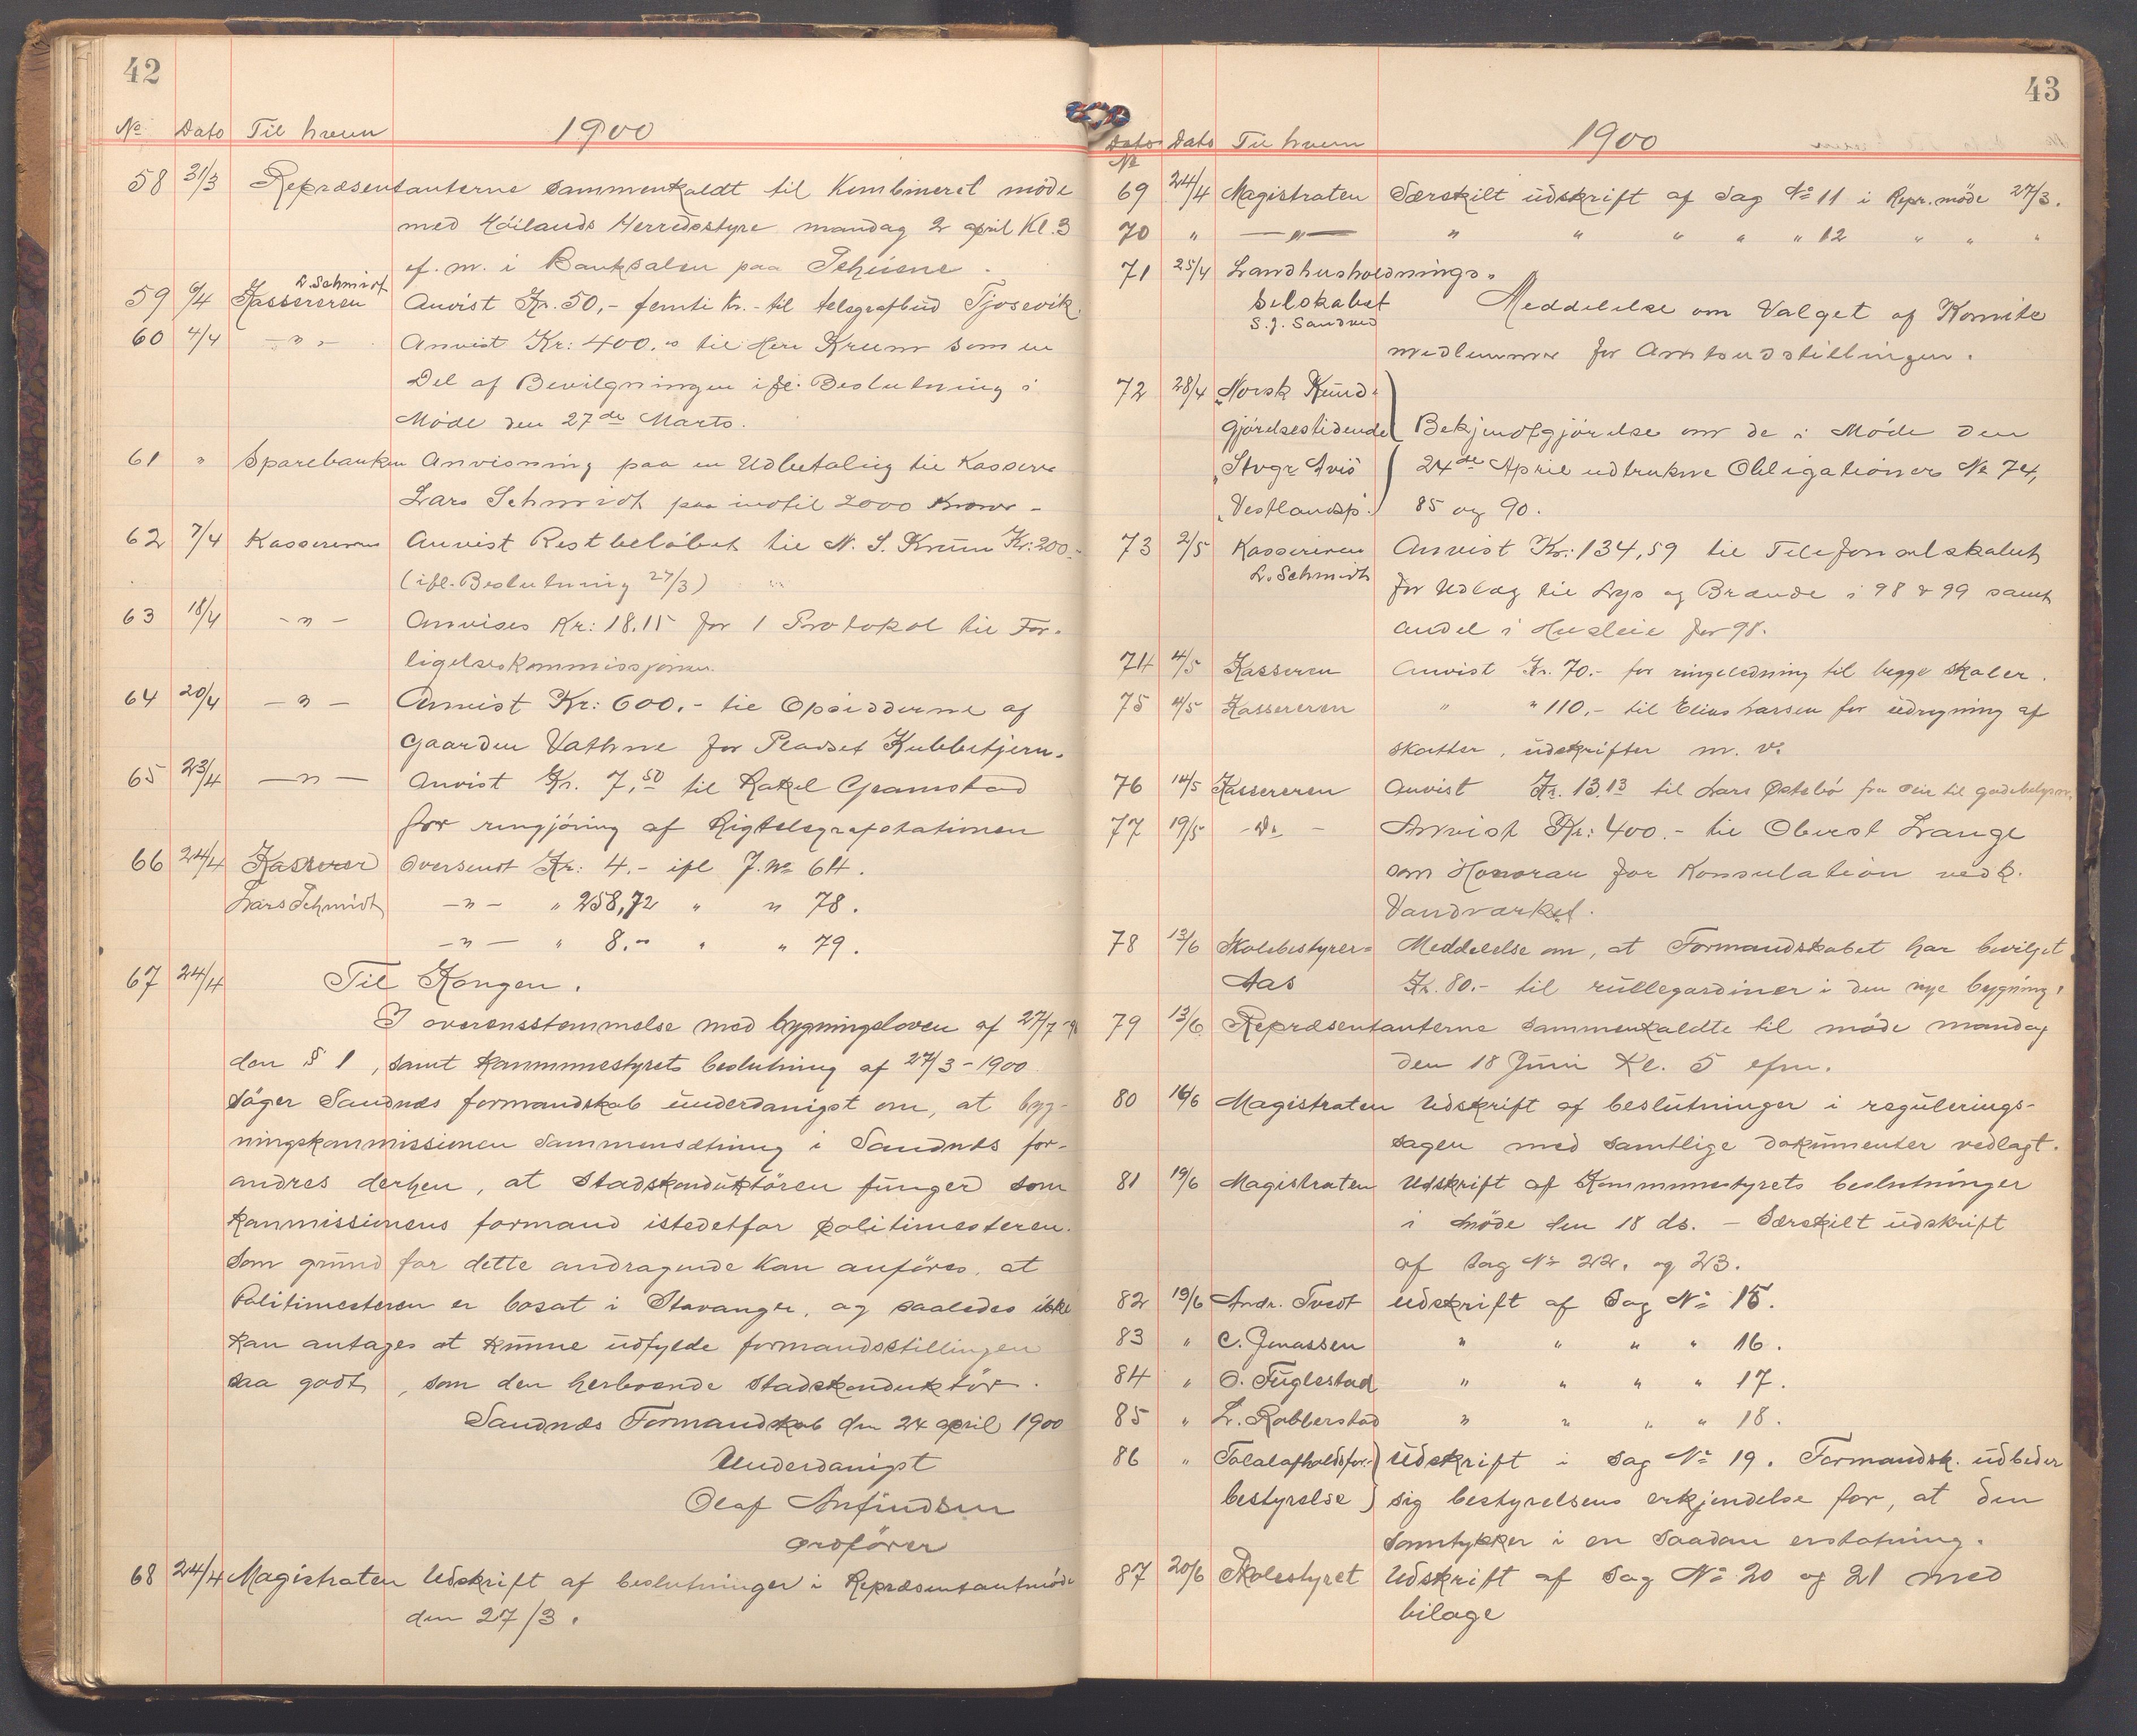 42
No Dato Til hvem 1900
58 31/3 Repræsentanterne sammenkaldt til kombineret möde
med Höilands Herredsstyre mandag 2 april Kl. 3
ef. m. i Banksalen paa
L. Schmidt
59 6/4 Kassereren Anvist Kr. 50,- femti Kr. - til telegrafbud Tjosevik.
60 4/4 -"- Anvist Kr: 400.00 til Herr Krum som en
Del af Bevilgningen ifl. Beslutning i
Møde den 27de Marts.
61 " Sparebanken Anvisning paa en Udbetaling til Kasserer
Lars Schmidt paa indtil 2000 Kroner -
62 7/4 Kassereren Anvist Restbeløbet til N. S. Krum Kr: 200.-
(ifl. Beslutning 27/3)
63 18/4 -"- Anvises Kr: 18.15 for 1 Protokol til For-
ligelseskommissjonen.
64 20/4 -"- Anvist Kr: 600.- til Opsidderne af
Gaarden Vathne for Pladset Kubbetjern.
65 23/4 -"- Anvist Kr. 7,50 til Rakel Gramstad
for rengjöring af Rigtelegrafstationen
66 24/4 Kasserer Oversendt Kr: 4.- ifl J. No 64.
Lars Schmidt -"- " 258,72 " " 78.
-"- " 8.- " " 79.
67 24/4 Til Kongen.
I overensstemmelse med bygningsloven af 27/7-96
den § 1, samt kommunestyrets beslutning af 27/3-1900
söger Sandnæs formandskab underdanigst om, at byg-
ningskommissionen sammensætning i Sandnæs for-
andres derhen, at Stadskonduktören funger som
kommissionens formand istedetfor politimesteren.
Som grund for dette andragende kan anföres, at
Politimesteren er bosat i Stavanger, og saaledes ikke
kan antages at kunne udfylde formandsstillingen
saa godt, som den herboende stadskonduktör.
Sandnæs Formandskab den 24 april 1900
Underdanigst
Olaf Anfindsen
ordförer
68 24/4 Magistraten Udskrift af beslutninger i Repræsentantmöde
den 27/3.
43
Dato Dato Til hvem 1900
No
69 24/4 Magistraten Særskilt udskrift af Sag No 11 i Repr. möde 27/3.
70 " -"- " " " " " 12 " " "
71 25/4 Landhusholdnings-
selskabet Meddelelse om Valget af Komite
S. J. Sandved
medlemmer for Amtsudstillingen.
72 28/4 "Norsk Kund-
gjørelsestidende Bekjendtgjørelse om de i Møde den
"Stvgr Avis 24de April udtrukne Obligationer No 74,
"Vestlandsp. 85 og 90.
73 2/5 Kassereren Anvist Kr: 134,59 til Telefonselskabet
L. Schmidt for Udlæg til Lys og Brænde i 98 & 99 samt
andel i Husleie for 98.
74 4/5 Kasseren Anvist Kr. 70.- for ringeledning til begge skoler.
75 4/5 Kassereren " " 110,- til Elias Larsen for udregning af
skatter, udskrifter m. v.
76 14/5 Kassereren Anvist Kr. 13.13 til Lars Østebö for til gadebelysn.
77 19/5 -Do- Anvist Kr: 400.- til Oberst Lange
som Honorar for Konsulation vedk.
Vandværket.
78 13/6 Skolebestyrer- Meddelelse om, at Formandskabet har bevilget
Aas Kr. 80.- til rullegardiner i den nye bygning.
79 13/6 Repræsentanterne sammenkaldte til möde mandag
den 18 Juni Kl. 5 efm.
80 16/6 Magistraten Udskrift af beslutninger i regulerings-
sagen med samtlige dokumenter vedlagt.
81 19/6 Magistraten Udskrift af Kommunestyrets beslutninger
i möde den 18 ds. - Særskilt udskrift
af sag No 22. og 23.
82 19/6 Andr. Tvedt Udskrift af Sag No 15.
83 " C. Jonassen " " " " 16.
84 " O. Fuglestad " " " " 17.
85 " L. Rabberstad " " " " 18.
86 " Totalafholdsfor- Udskrift i Sag No 19. Formandsk. udbeder
bestyrelse sig bestyrelsens erkjendelse for, at den
samtykker i en saadan erstatning.
87 20/6 Skolestyret Udskrift af Sag No 20 og 21 med
bilage